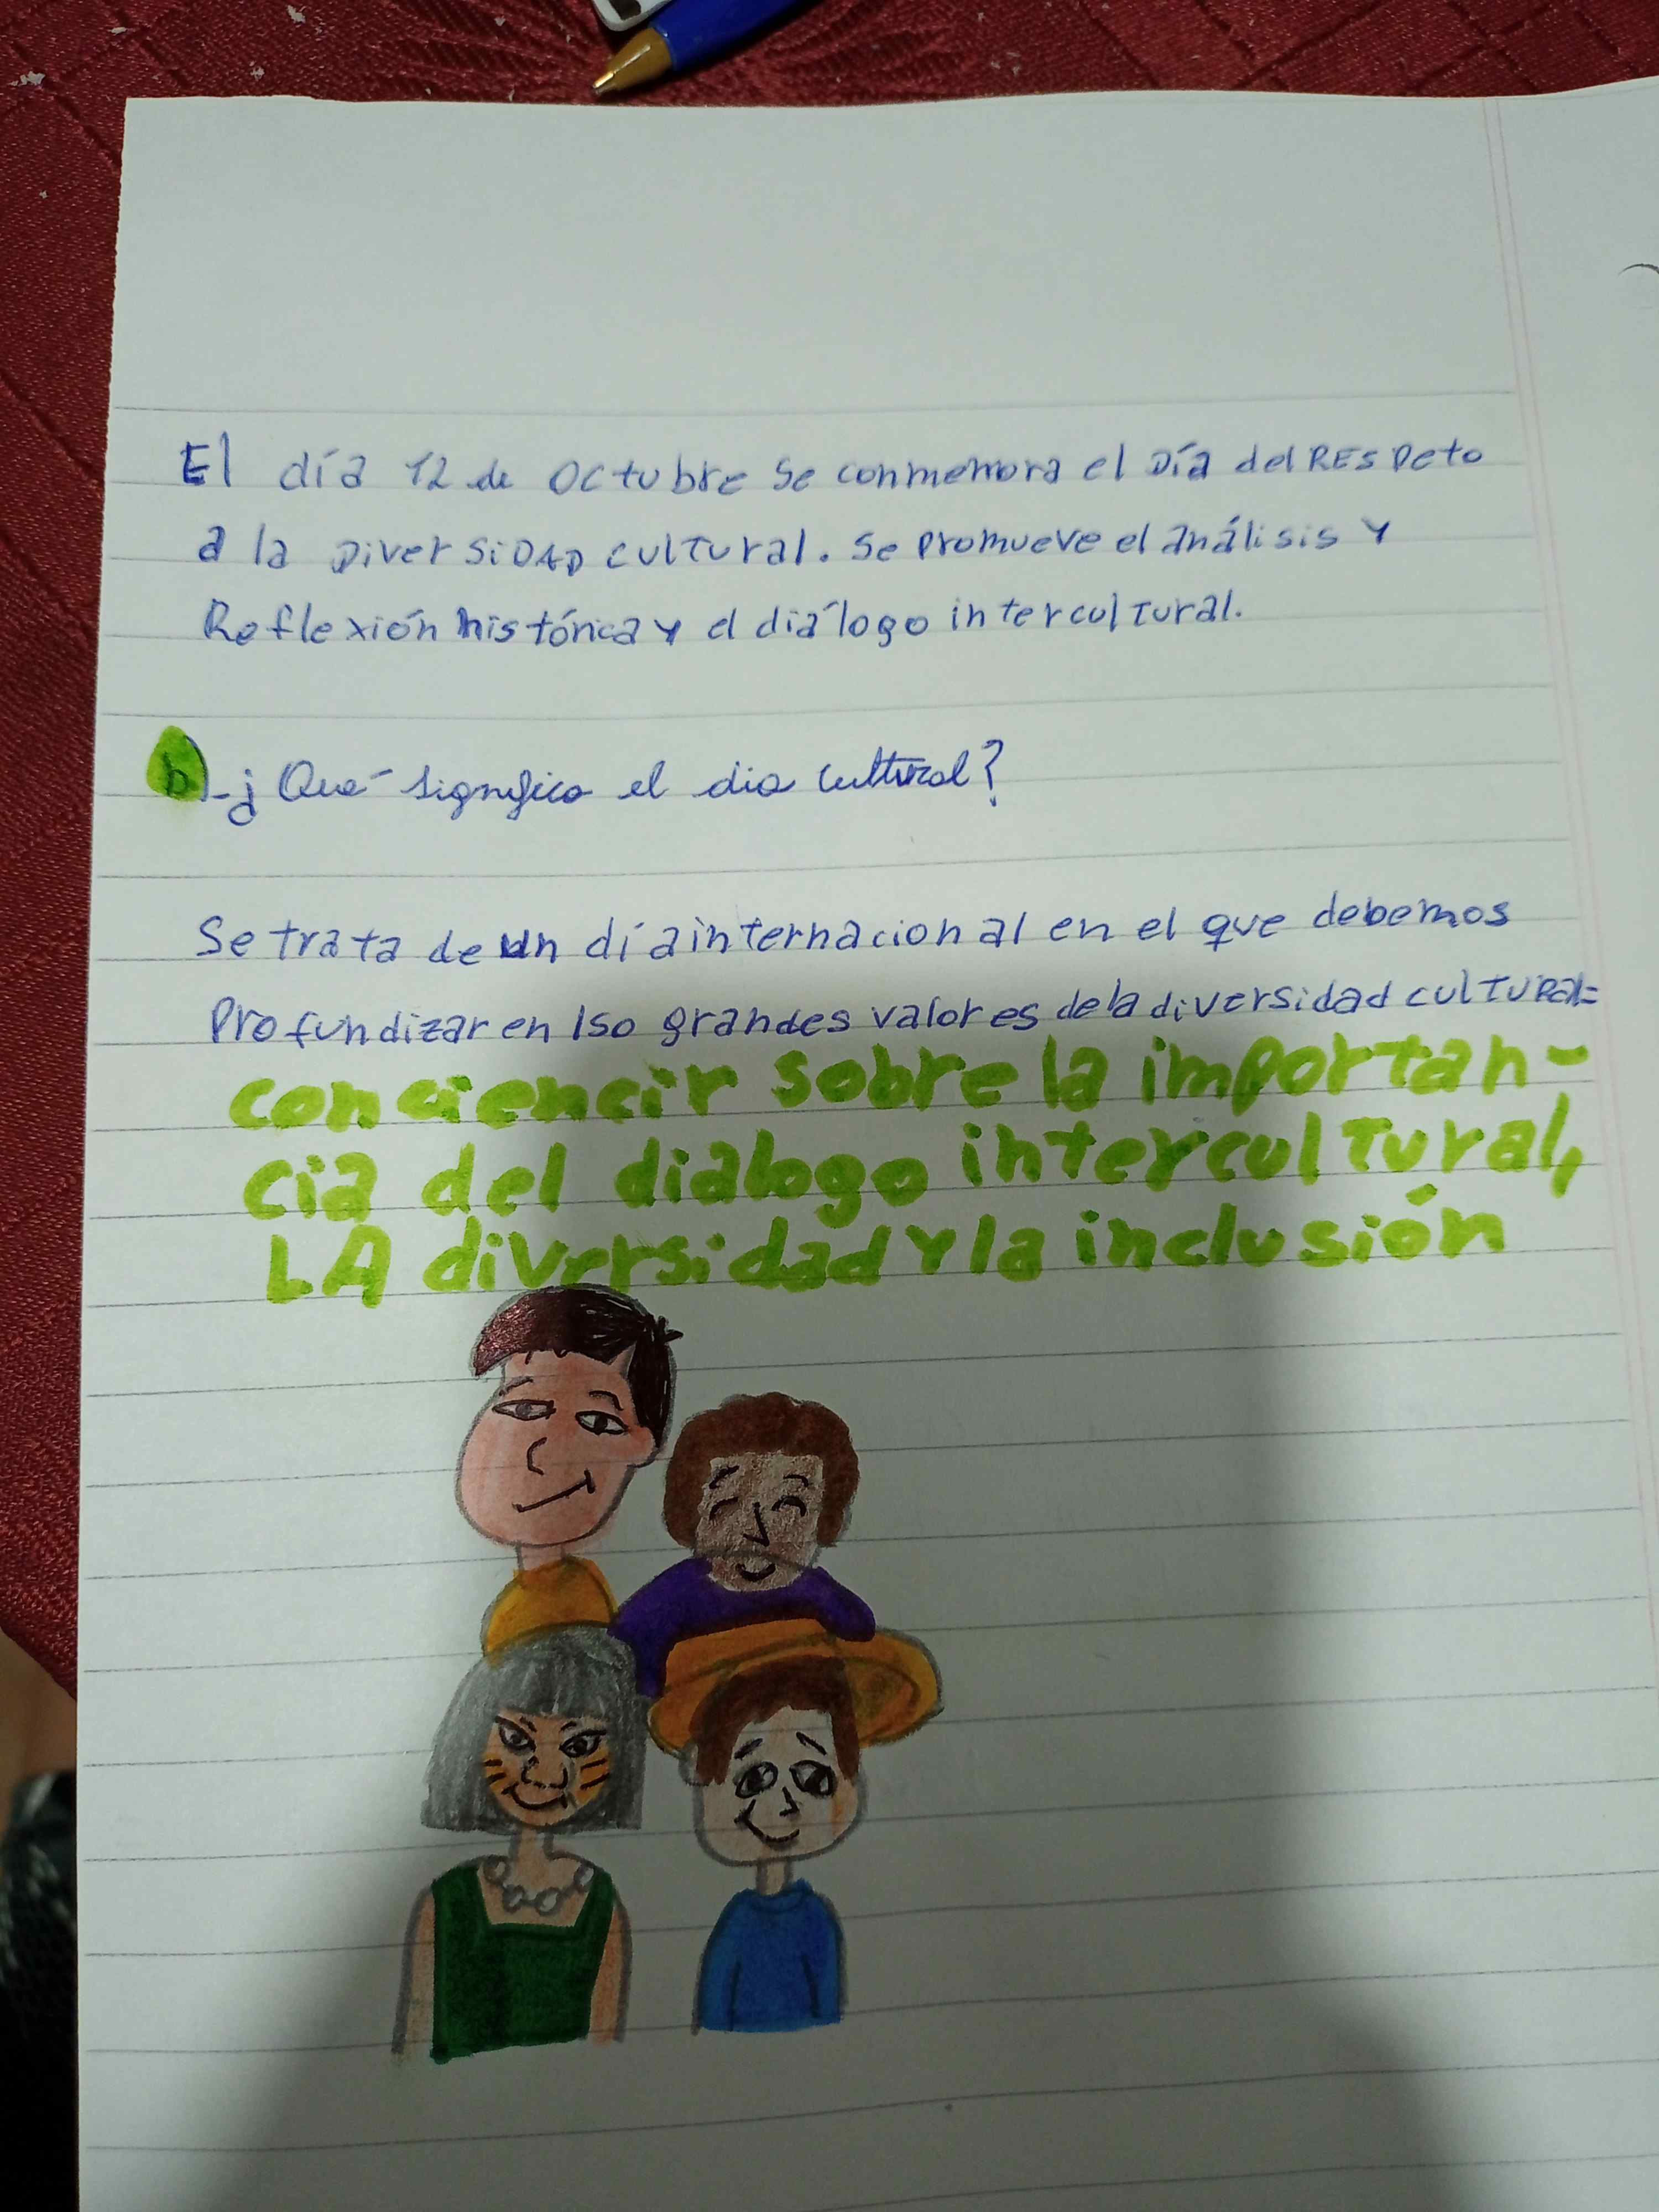 El día 12 de Octubre se conmemora el Día del RESPeto
a la DiverSiDAD cultural. Se Promueve el análisis Y
Reflexión histórica y el diálogo intercultural.
b)-¿Qué significa el dia cultural?
Se trata de un día internacional en el que debemos
Profundizar en lso grandes valores de la diversidad cultural=
conciencir sobre la importan-
cia del dialogo intercultural,
LA diversidad y la inclusión